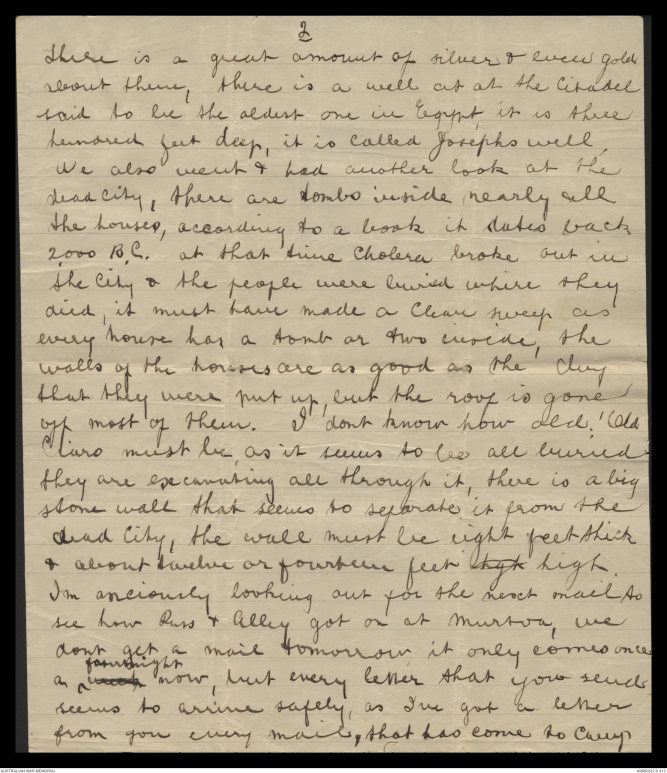 2
there is a great amount of silver & even gold
about them, there is a well at at the Citadel
said to be the oldest one in Egypt, it is three
hundred feet deep, it is called Josephs well,
We also went & had another look at the
dead city, there are tombs inside nearly all
the houses, according to a book it dates back
2,000 B.C. at that time Cholera broke out in
the City & the people were buried where they
died, it must have made a clean sweep as
every house has a tomb or two inside, the
walls of the houses are as good as the day
that they were put up, but the roof is gone
off most of them. I dont know how old. "Old
Ciaro must be, as it seems to be all buried
they are excavating all through it, there is a big
stone wall that seems to separate it from the
dead City, the wall must be eight feet thick
& about twelve or fourteen feet high
I'm anciously looking out for the next mail to
see how Russ & Elley got on at Murtoa, we
dont get a mail tomorrow it only comes once
a fournight now, but every letter that you send
seems to arrive safely, as I've got a letter
from you every mail, that has come to Camp
AUSTRALIAN WAR MEMORIAL